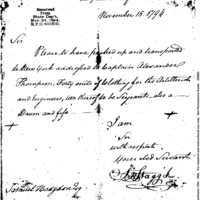 Received
from
State Dep't.
Nov. 24, 1894.
R.P.O.
November 15. 1794.
Sir
Please to have packed up and transported
to New York addressed to Captain Alexander
Thompson, Forty suits of Clothing for the Artillerists
and Engineers, two thereof to be Serjeants, also a
Drum and fife
I am
Sir
with respect
Your obed Servant
Stagg
Samuel Hodgdon Esq